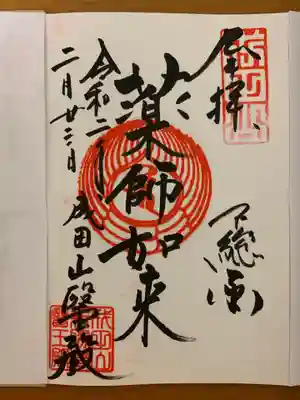 奉拝
下總國
薬師如来
令和二年
二月廿三日
成田山醫王殿